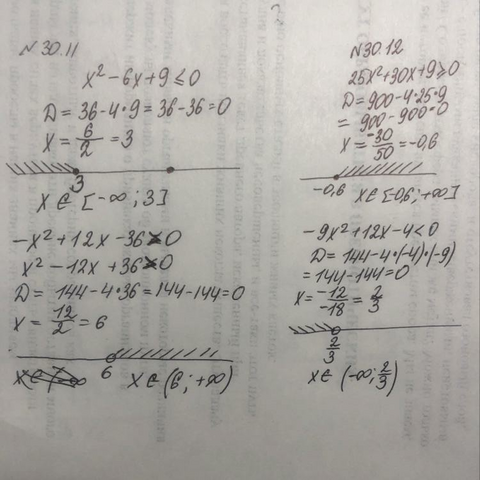 N 30.11
x² - 6x + 9 ≤ 0
D = 36 - 4·9 = 36 - 36 = 0
x = 6/2 = 3
3
x ∈ [-∞; 3]
-x² + 12x - 36 > 0
x² - 12x + 36 > 0
D = 144 - 4·36 = 144 - 144 = 0
x = 12/2 = 6
6
x ∈ (6; +∞)
N 30.12
25x² + 30x + 9 ≥ 0
D = 900 - 4·25·9
= 900 - 900 = 0
x = -30/50 = -0,6
-0,6
x ∈ [-0,6; +∞]
-9x² + 12x - 4 < 0
D = 144 - 4·(-4)·(-9)
= 144 - 144 = 0
x = -12/-18 = 2/3
2/3
x ∈ (-∞; 2/3)